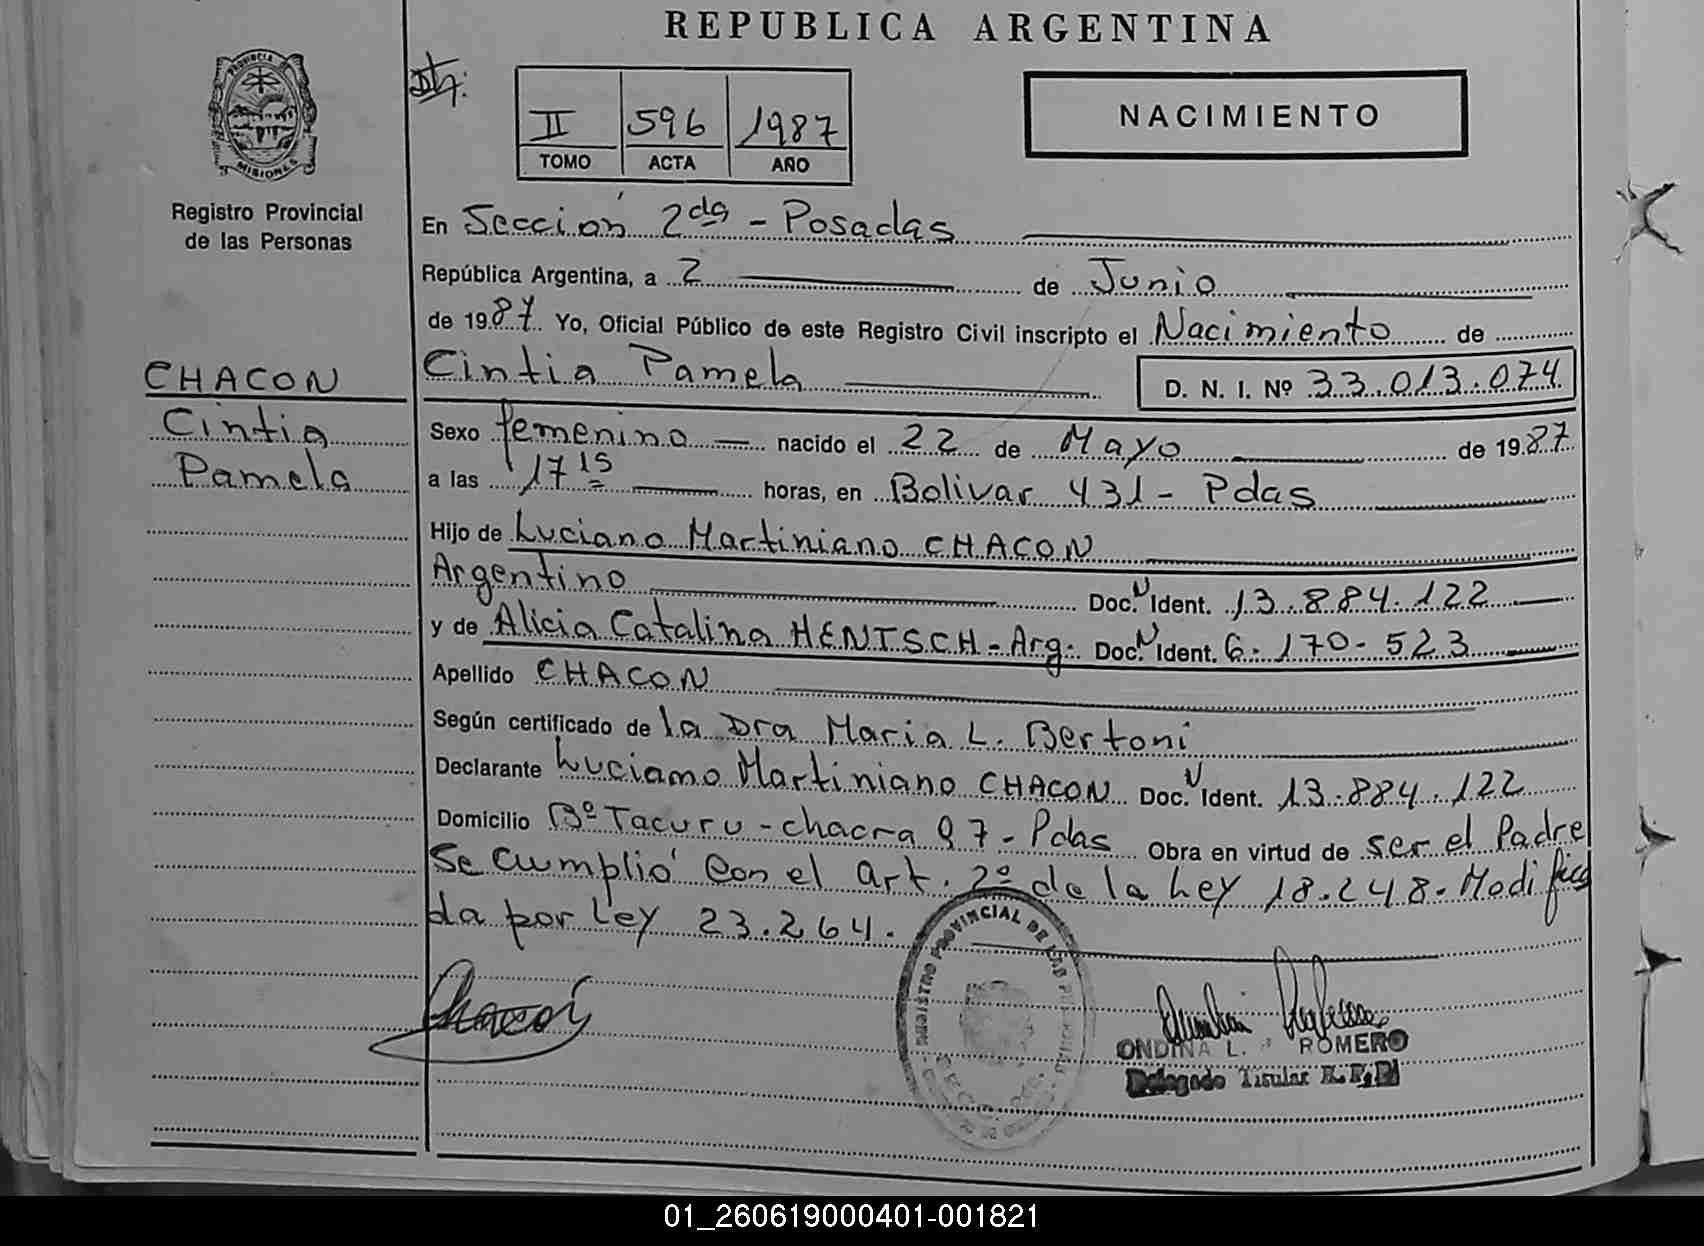 REPUBLICA ARGENTINA
PROVINCIA DE MISIONES
Registro Provincial
de las Personas
II 596 1987
TOMO ACTA AÑO
NACIMIENTO
En Sección 2da - Posadas
República Argentina, a 2 de Junio
de 1987. Yo, Oficial Público de este Registro Civil inscripto el Nacimiento de
CHACON
Cintia
Pamela
Cintia Pamela D. N. I. Nº 33.013.074
Sexo femenino nacido el 22 de Mayo de 1987
a las 17 15 horas, en Bolivar 431 - Pdas
Hijo de Luciano Martiniano CHACON
Argentino Doc. N Ident. 13.884.122
y de Alicia Catalina HENTSCH - Arg. Doc. N Ident. 6.170-523
Apellido CHACON
Según certificado de la Dra Maria L. Bertoni
Declarante Luciamo Martiniano CHACON Doc. N Ident. 13.884.122
Domicilio Bº Tacuru - chacra 97 - Pdas Obra en virtud de ser el Padre
Se Cumplió con el art. 2º de la Ley 18.248. Modifica
da por Ley 23.264.
Chacon
REGISTRO PROVINCIAL DE LAS
ONDINA L. ROMERO
Delegado Titular R.P.P.
01_260619000401-001821